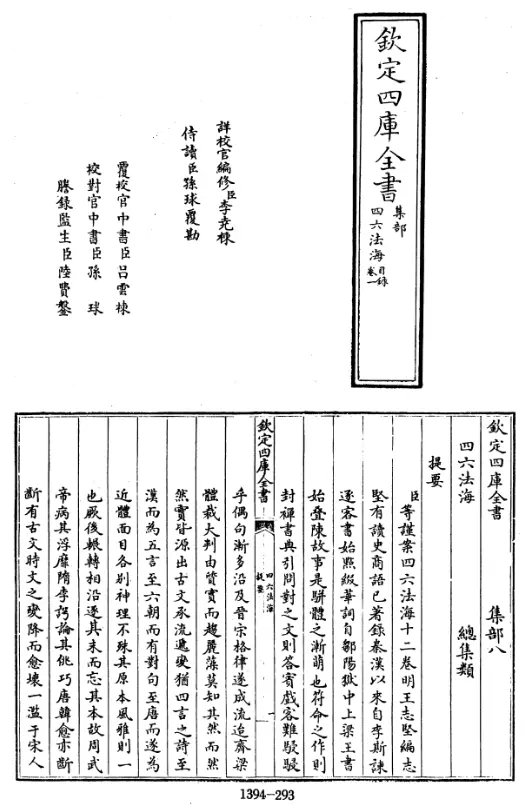 欽定四庫全書
集部
四六法海
目錄
卷一
詳校官編修臣李堯棟
侍讀臣孫球覆勘
覆校官中書臣呂雲棟
校對官中書臣孫球
謄錄監生臣陸費鏊
欽定四庫全書 集部八
四六法海 總集類
提要
臣等謹案四六法海十二卷明王志堅編志
堅有讀史商語已著錄秦漢以來自李斯諫
逐客書始點綴華詞自鄒陽獄中上梁王書
始疊陳故事是駢體之漸萌也符命之作則
封禪書典引問對之文則答賓戲客難駸駸
欽定四庫全書 四六法海 提要 一
乎偶句漸多沿及晉宋格律遂成流迨齊梁
體裁大判由質實而趨麗藻莫知其然而然
然實皆源出古文承流遞變猶四言之詩至
漢而為五言至六朝而有對句至唐而遂為
近體面目各別神理不殊其原本風雅則一
也厥後輾轉相沿逐其末而忘其本故周武
帝病其浮靡隋李諤論其佻巧唐韓愈亦斷
斷有古文時文之變降而愈壞一濫于宋人
1394—293